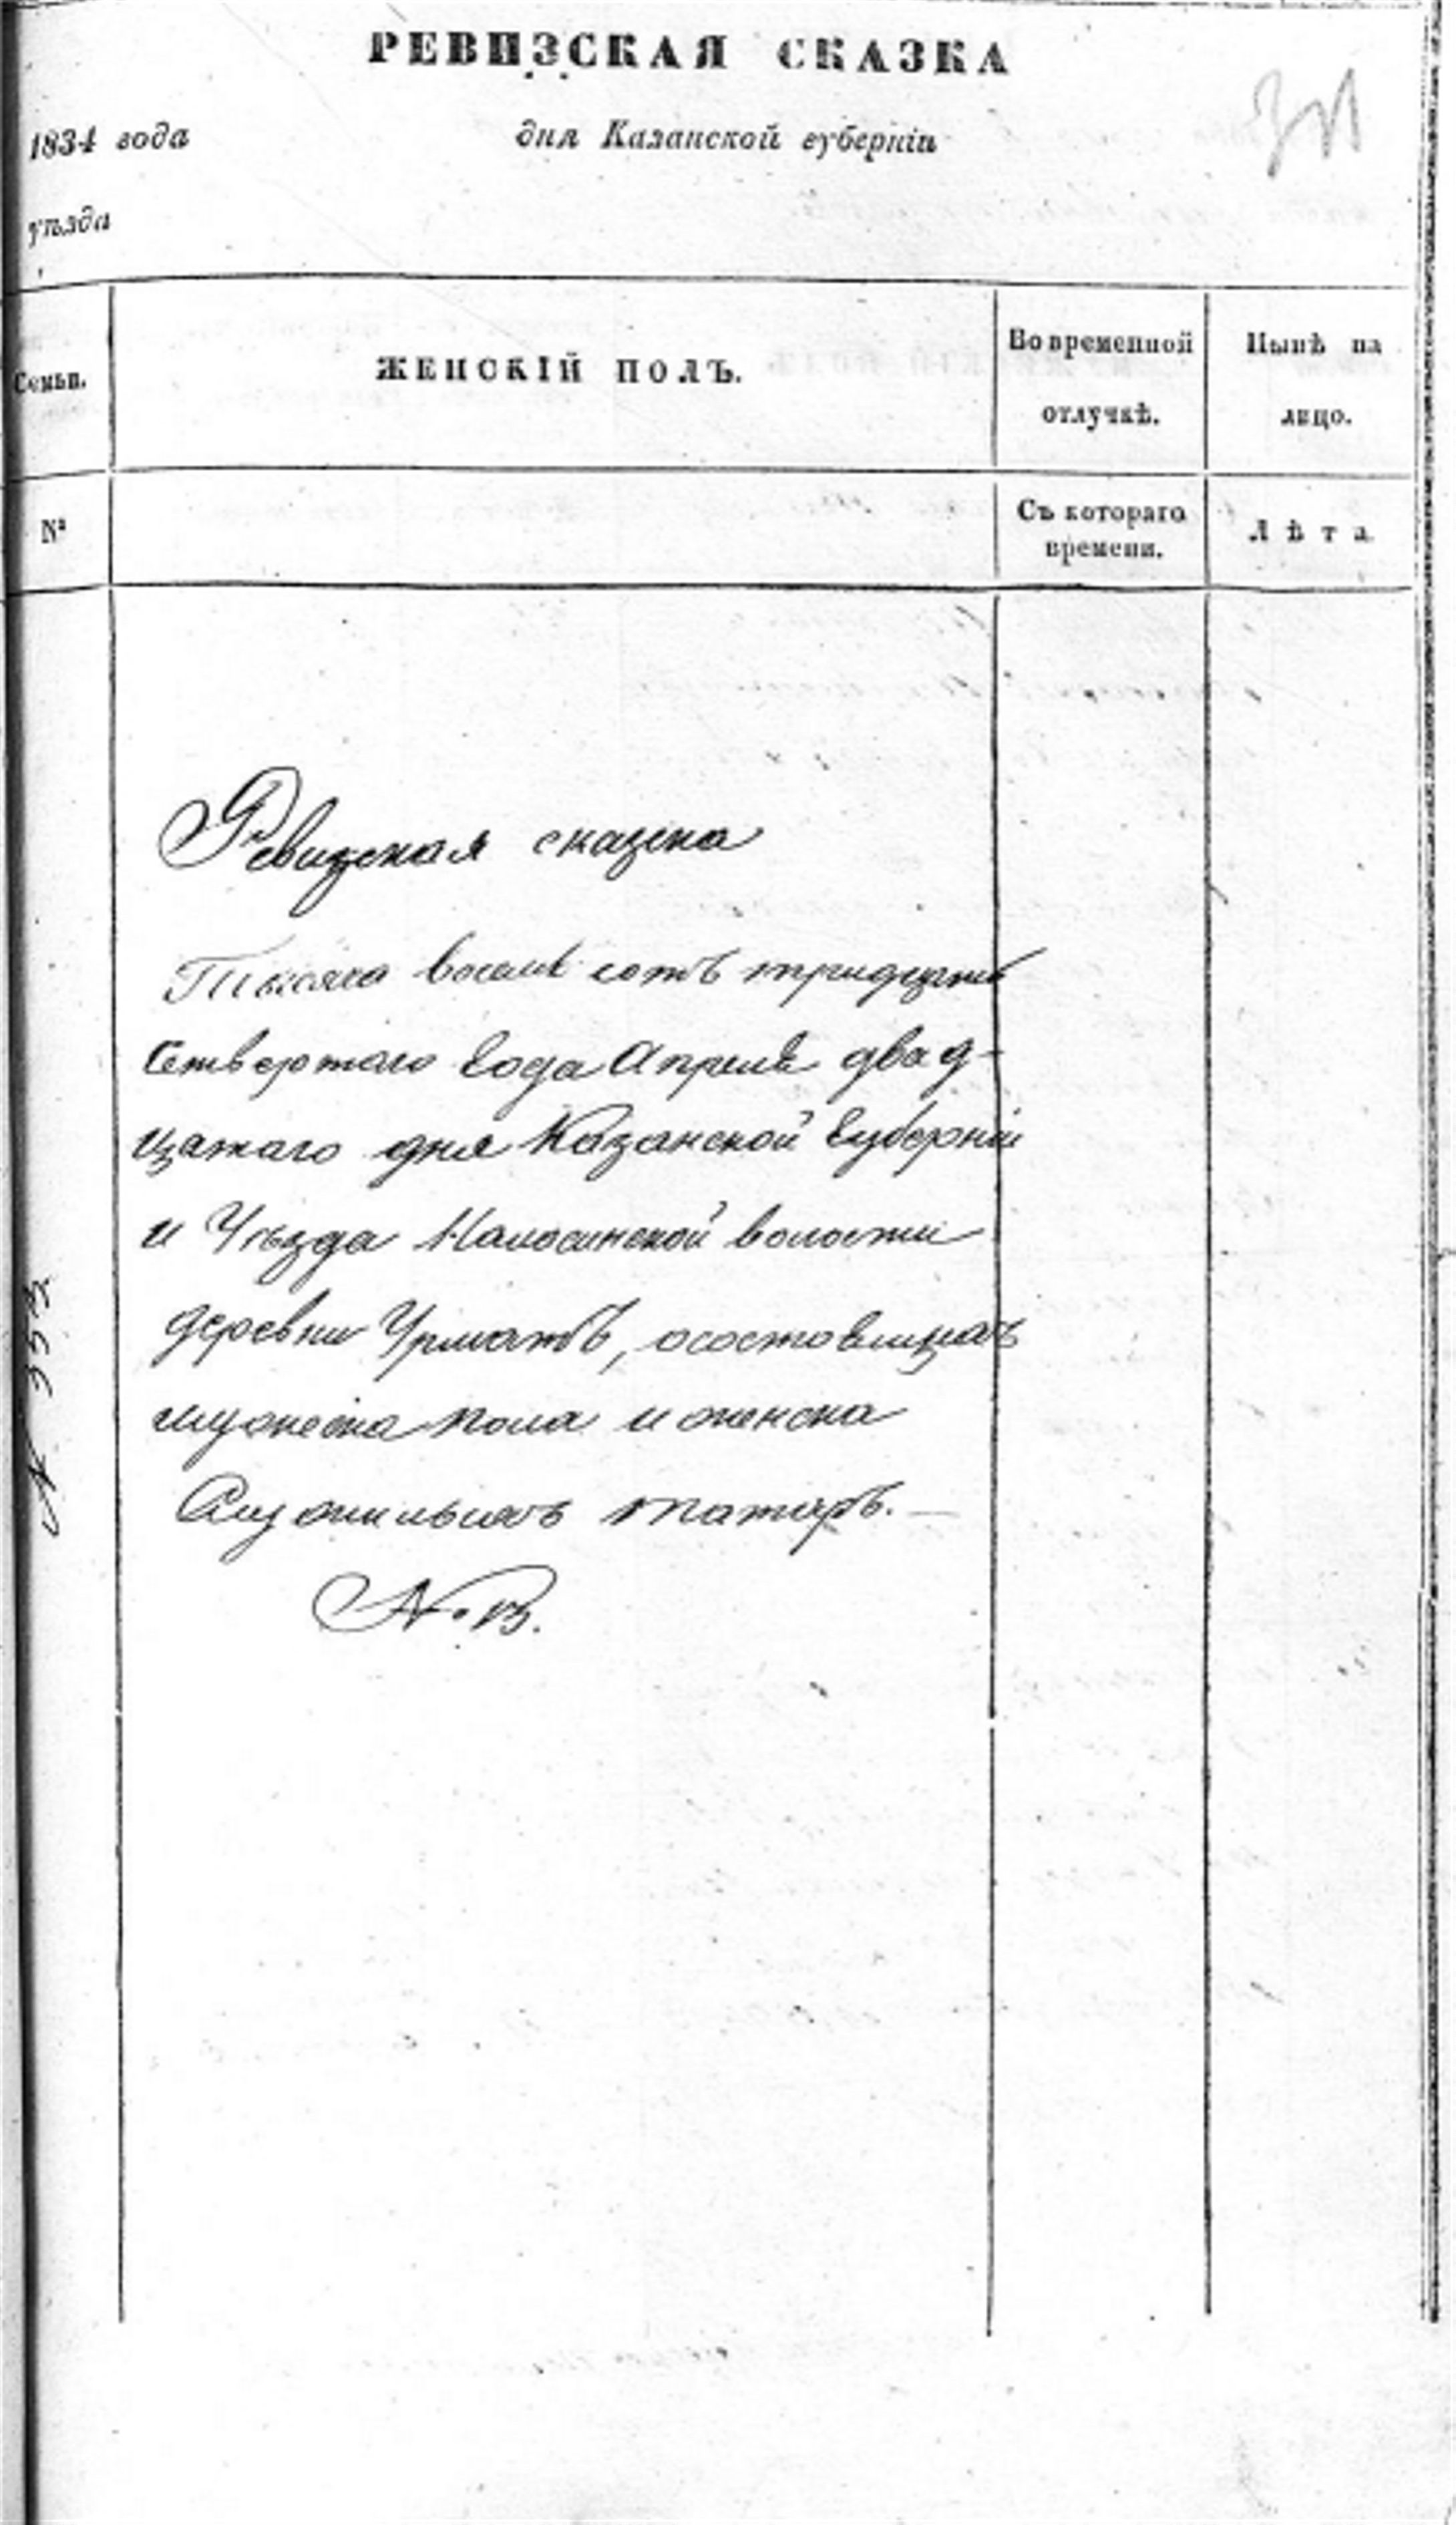 РЕВИЗСКАЯ СКАЗКА
1834 года дня Казанской губерніи
уѣзда
Семьи. ЖЕНСКІЙ ПОЛЪ. Во временной отлучкѣ. Нынѣ на лицо.
№ Съ котораго времени. Лѣта
Ревизская сказка
Тысяча восемь сотъ тридцать
Четвертаго Года Апреля двад-
цатаго дня Казанской Губерніи
и Уѣзда волости
деревни Урматъ, осостоящихъ
мужеска пола и женска
татаръ. —
№ 333